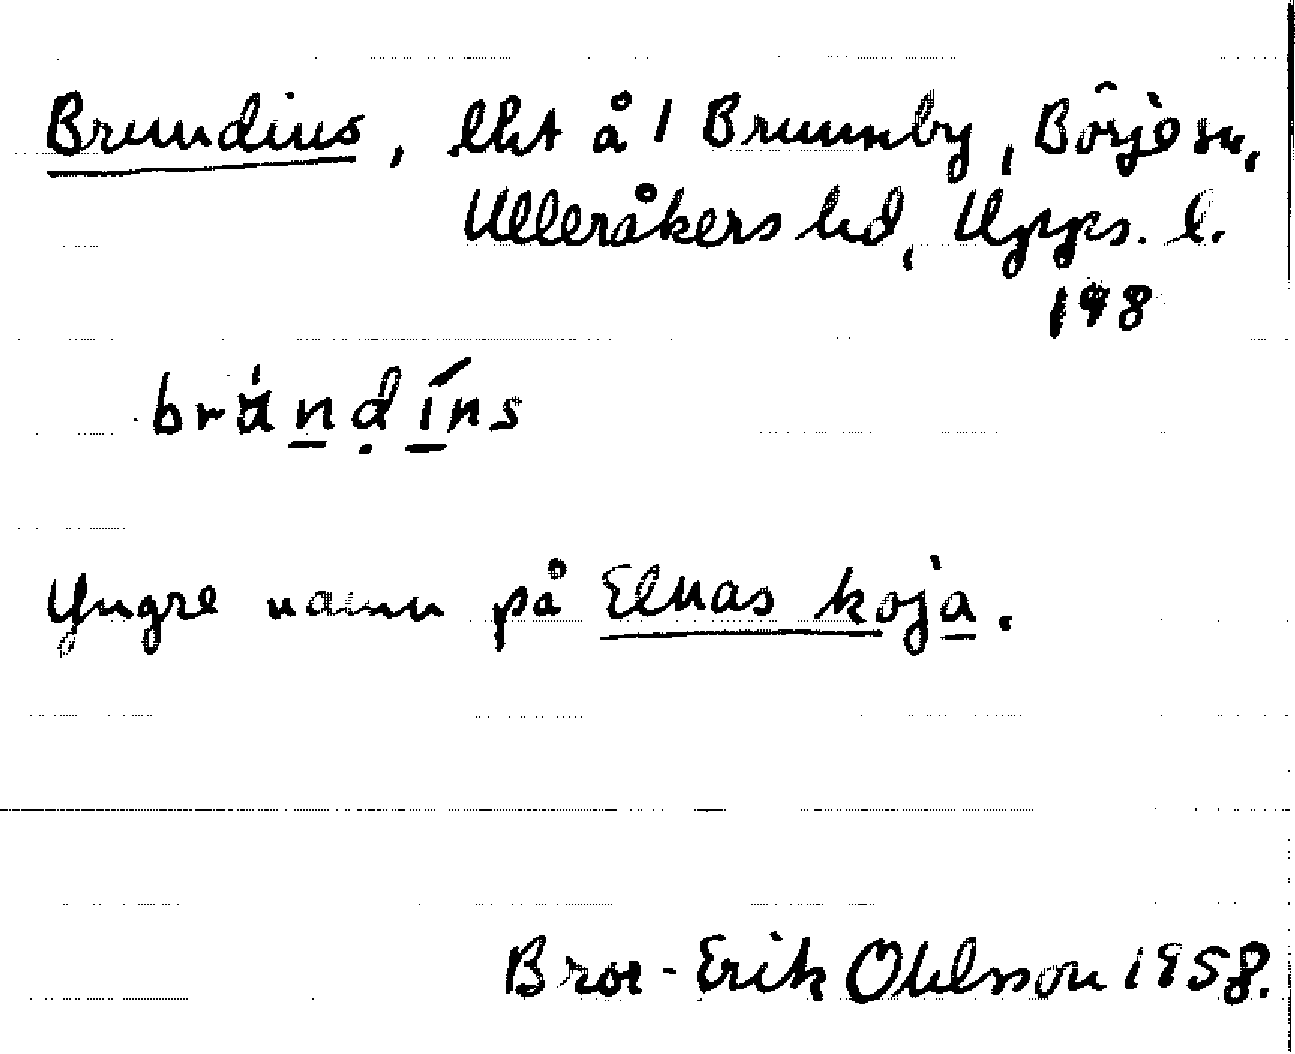 Brundius, lht å 1 Brunnby, Börje sn,
Ulleråkers hd, Upps. l.
198
Yngre namn på Elnas koja.
Bror-Erik Ohlsson 1958.